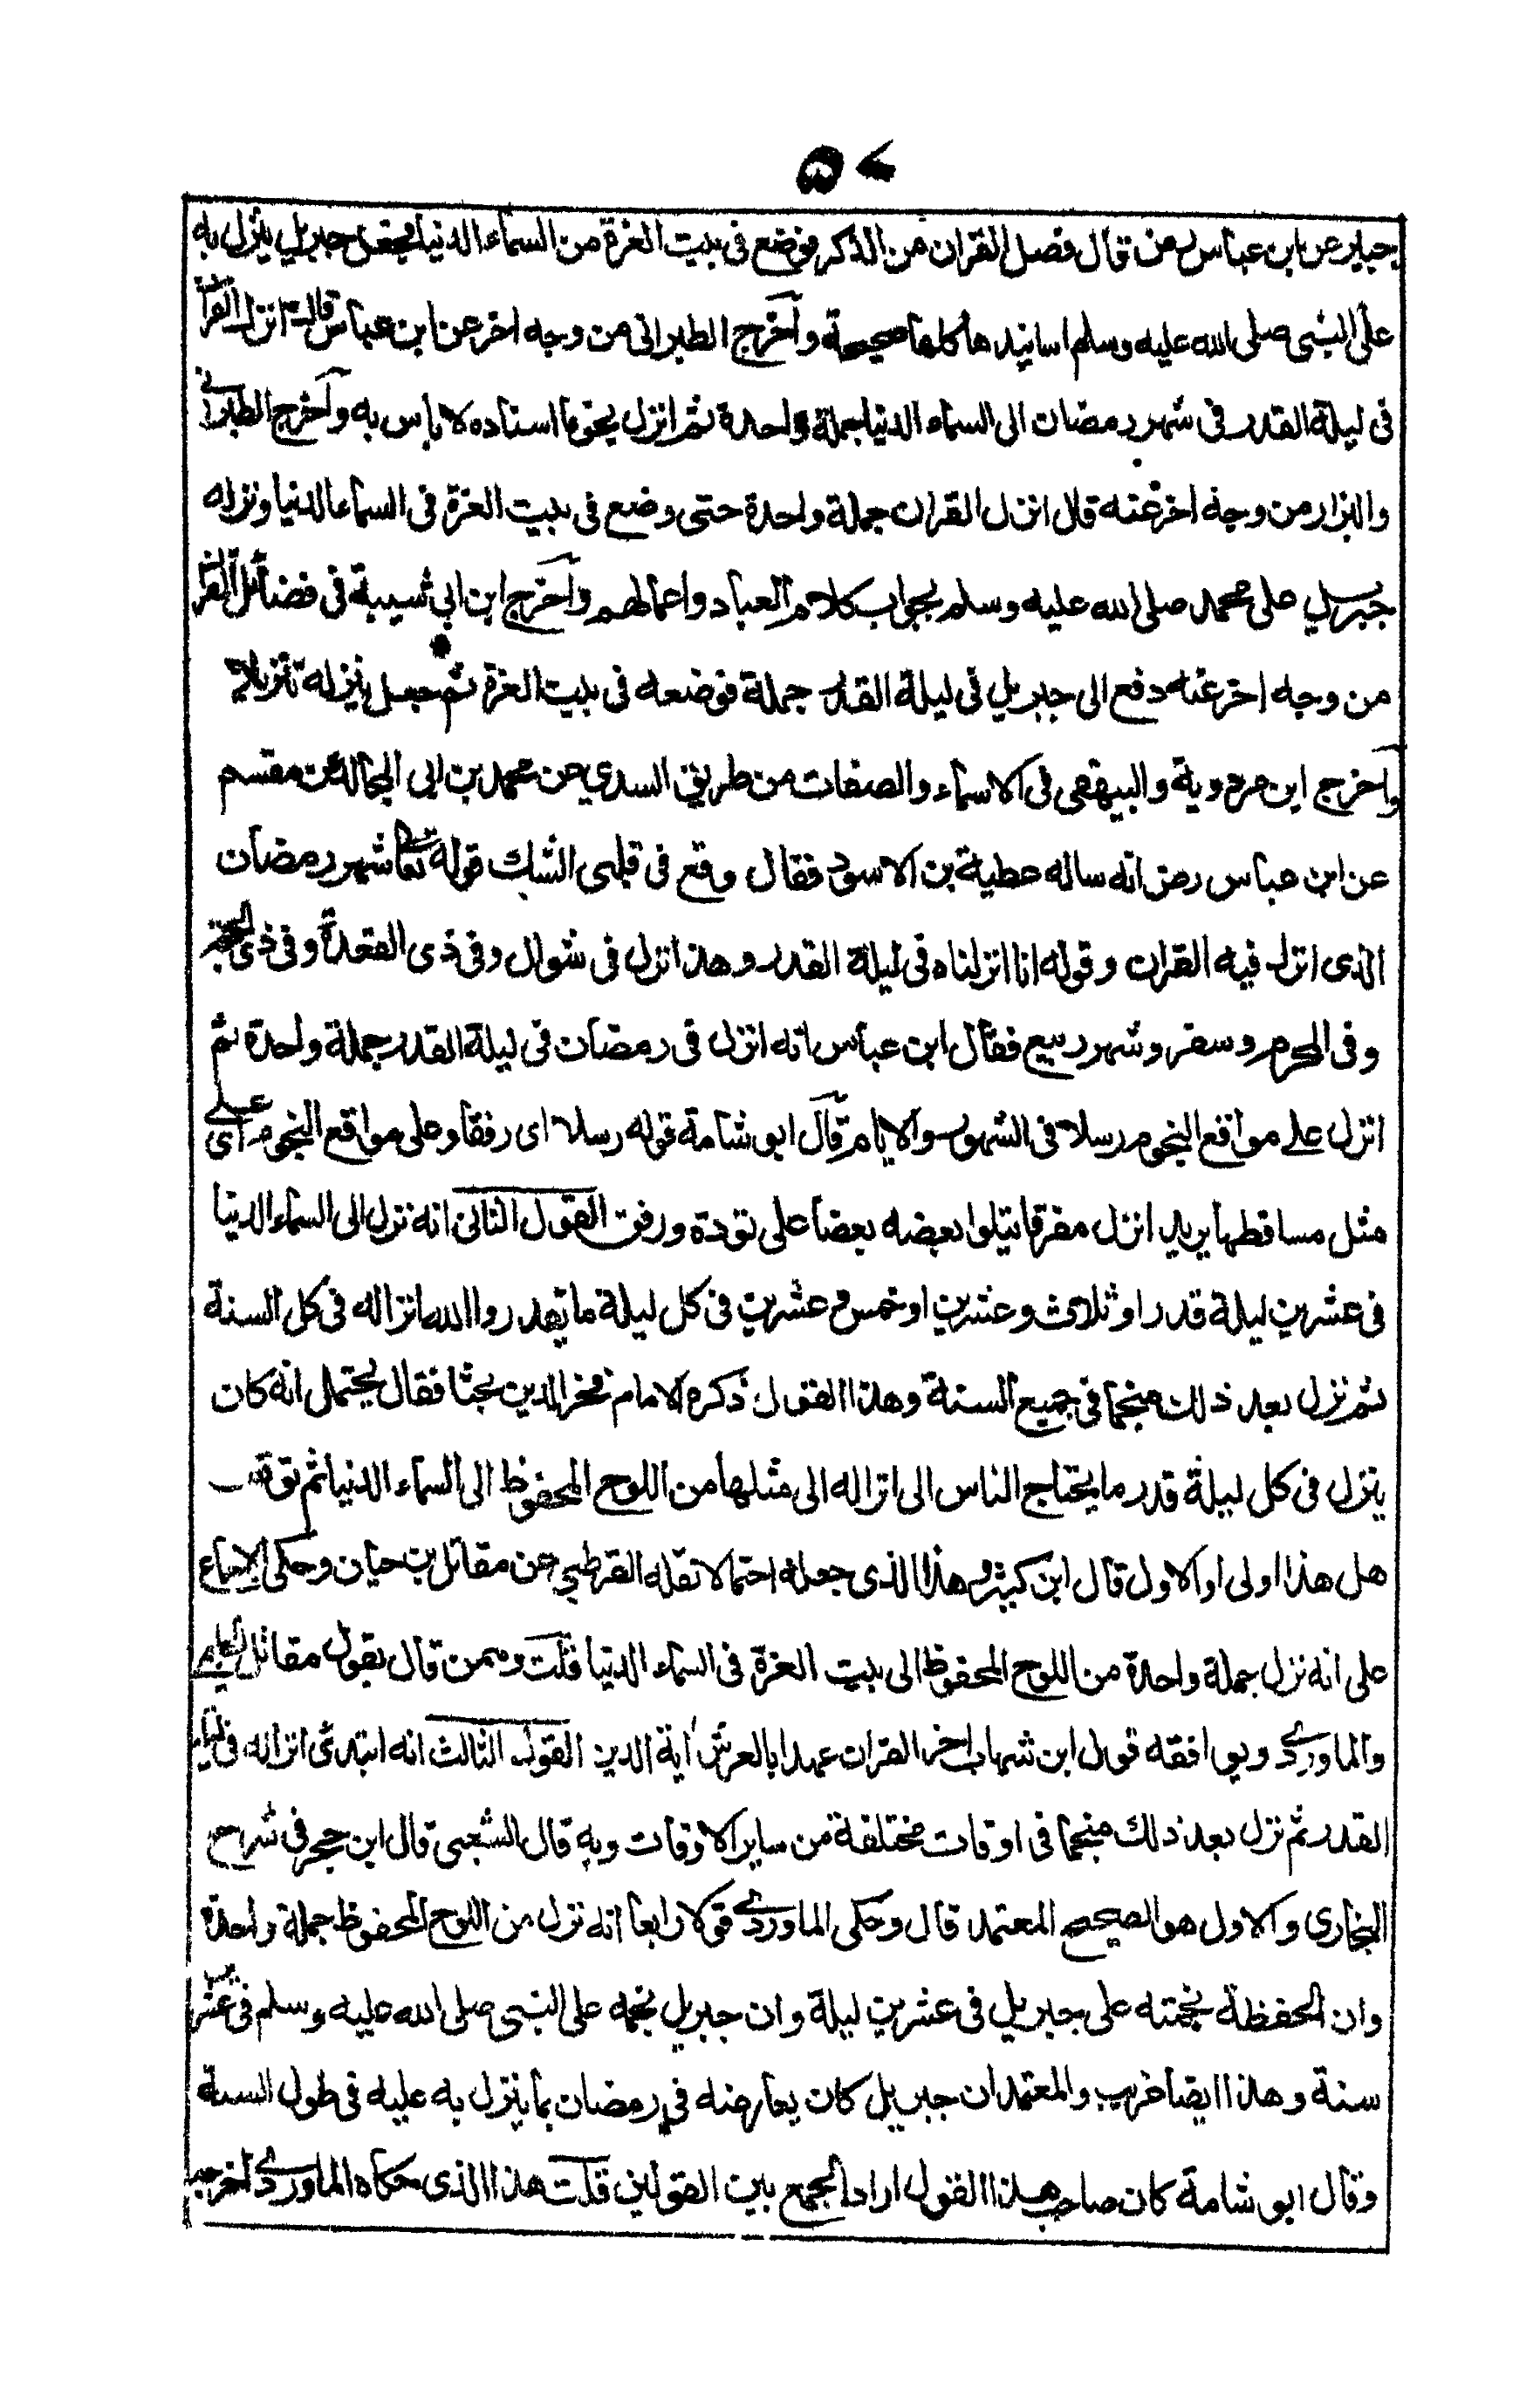 جبير عن ابن عباس رض قال فصل القران من الذكر فوضع فى بيت العزة من السماء الدنيا فجعل جبريل ينزل به
على النبى صلى الله عليه وسلم اسانيدها كلها صحيحة وآخرج الطبرانى من وجه اخر عن ابن عباس قالـ انزل القران
فى ليلة القدر فى شهر رمضان الى السماء الدنيا جملة واحدة ثم انزل نجوما اسناده لا باس به وآخرج الطبرانى
والبزار من وجه اخر عنه قال انزل القران جملة واحدة حتى وضع فى بيت العزة فى السماء الدنيا ونزله
جبريل على محمد صلى الله عليه وسلم بجواب كلام العباد واعمالهم وآخرج ابن ابي شيبة فى فضائل القران
من وجه اخر عنه دفع الى جبريل فى ليلة القدر جملة فوضعه فى بيت العزة ثم جعل ينزله تنزيلا
وآخرج ابن مردوية والبيهقى فى الاسماء والصفات من طريق السدي عن محمد بن ابى المجالد عن مقسم
عن ابن عباس رض انه ساله عطية بن الاسود فقال وقع فى قلبى الشك قوله تعالى شهر رمضان
الذى انزل فيه القران وقوله انا انزلناه فى ليلة القدر وهذا انزل فى شوال وفى ذى القعدة وفى ذى الحجة
وفى المحرم وسفر وشهر ربيع فقال ابن عباس انه انزل فى رمضان فى ليلة القدر جملة واحدة ثم
انزل على مواقع النجوم رسلا فى الشهور والايام قال ابو شامة قوله رسلا اى رفقا وعلى مواقع النجوم اى على
مثل مساقطها يريد انزل مفرقا يتلوا بعضه بعضا على تودة ورفق القول الثانى انه نزل الى السماء الدنيا
فى عشرين ليلة قدر او ثلاث وعشرين او خمس وعشرين فى كل ليلة ما يقدر والله انزاله فى كل السنة
ثم نزل بعد ذلك منجما فى جميع السنة وهذا القول ذكره الامام فخر الدين بحثا فقال يحتمل انه كان
ينزل فى كل ليلة قدر ما يحتاج الناس الى انزاله الى مثلها من اللوح المحفوظ الى السماء الدنيا ثم توقف
هل هذا اولى او الاول قال ابن كثير وهذا الذى جعله احتمالا نقله القرطبي عن مقاتل بن حيان وحكى الاجماع
على انه نزل جملة واحدة من اللوح المحفوظ الى بيت العزة فى السماء الدنيا قلت وممن قال بقول مقاتل الحليمى
والماوردى ويوافقه قول ابن شهاب اخر القران عهدا بالعرش اية الدين القول الثالث انه ابتدئ انزاله فى ليلة
القدر ثم نزل بعد ذلك منجما فى اوقات مختلفة من ساير الاوقات وبه قال الشعبى قال ابن حجر فى شرح
البخارى والاول هو الصحيح المعتمد قال وحكى الماوردى قولا رابعا انه نزل من اللوح المحفوظ جملة واحدة
وان الحفظة نجمته على جبريل فى عشرين ليلة وان جبريل نجمه على النبى صلى الله عليه وسلم فى عشرين
سنة وهذا ايضا غريب والمعتمد ان جبريل كان يعارضه فى رمضان بما ينزل به عليه فى طول السنة
وقال ابو شامة كان صاحب هذا القول اراد الجمع بين القولين قلت هذا الذى حكاه الماوردى اخرجه